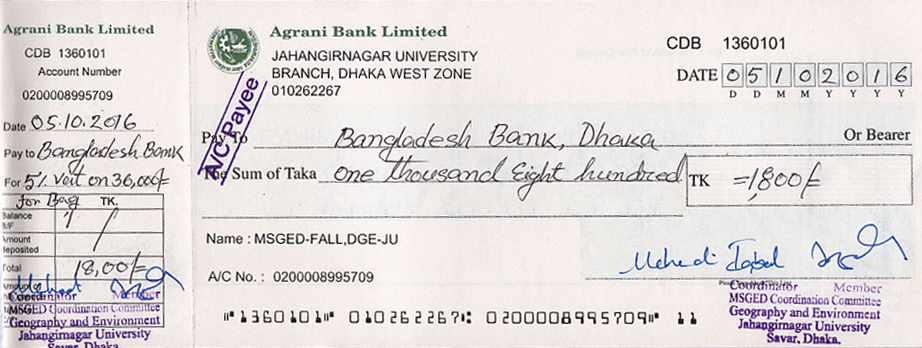 Agrani Bank Limited
CDB 1360101
Account Number
0200008995709
Date 05.10.2016
Pay to Bangladesh Bank
For 5% Vat on 36,000/=
for Bag TK.
Balance
B/F
Amount
deposited
Total 18,00/=
Coordinator Member
MSGED Coordination Committee
Geography and Environment
Jahangirnagar University
Savar, Dhaka.
Agrani Bank Limited
JAHANGIRNAGAR UNIVERSITY
BRANCH, DHAKA WEST ZONE
010262267
CDB 1360101
DATE 05102016
D D M M Y Y Y Y
A/C Payee
Pay To Bangladesh Bank, Dhaka Or Bearer
The Sum of Taka One thousand Eight hundred TK =1,800/=
Name : MSGED-FALL,DGE-JU
A/C No. : 0200008995709
Mehedi Iqbal
Coordinator Member
MSGED Coordination Committee
Geography and Environment
Jahangirnagar University
Savar, Dhaka.
⑈1360101⑈ 010262267⑆ 0200008995709⑈ 11